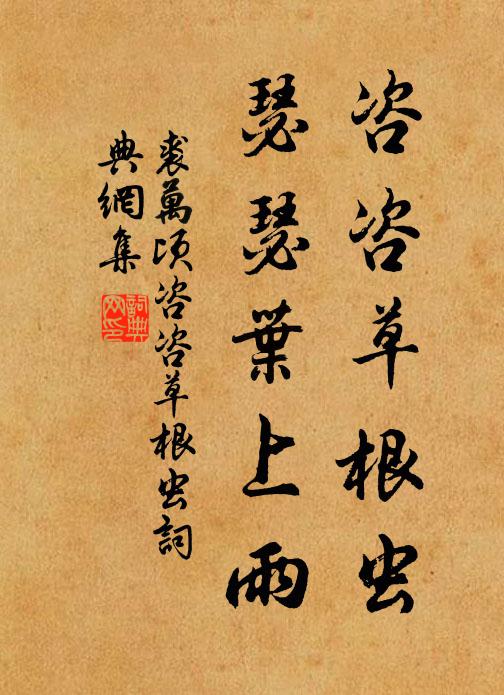 咨咨草根虫
瑟瑟葉上雨
裘萬顷咨咨草根虫詞
典網集
詞典
网印